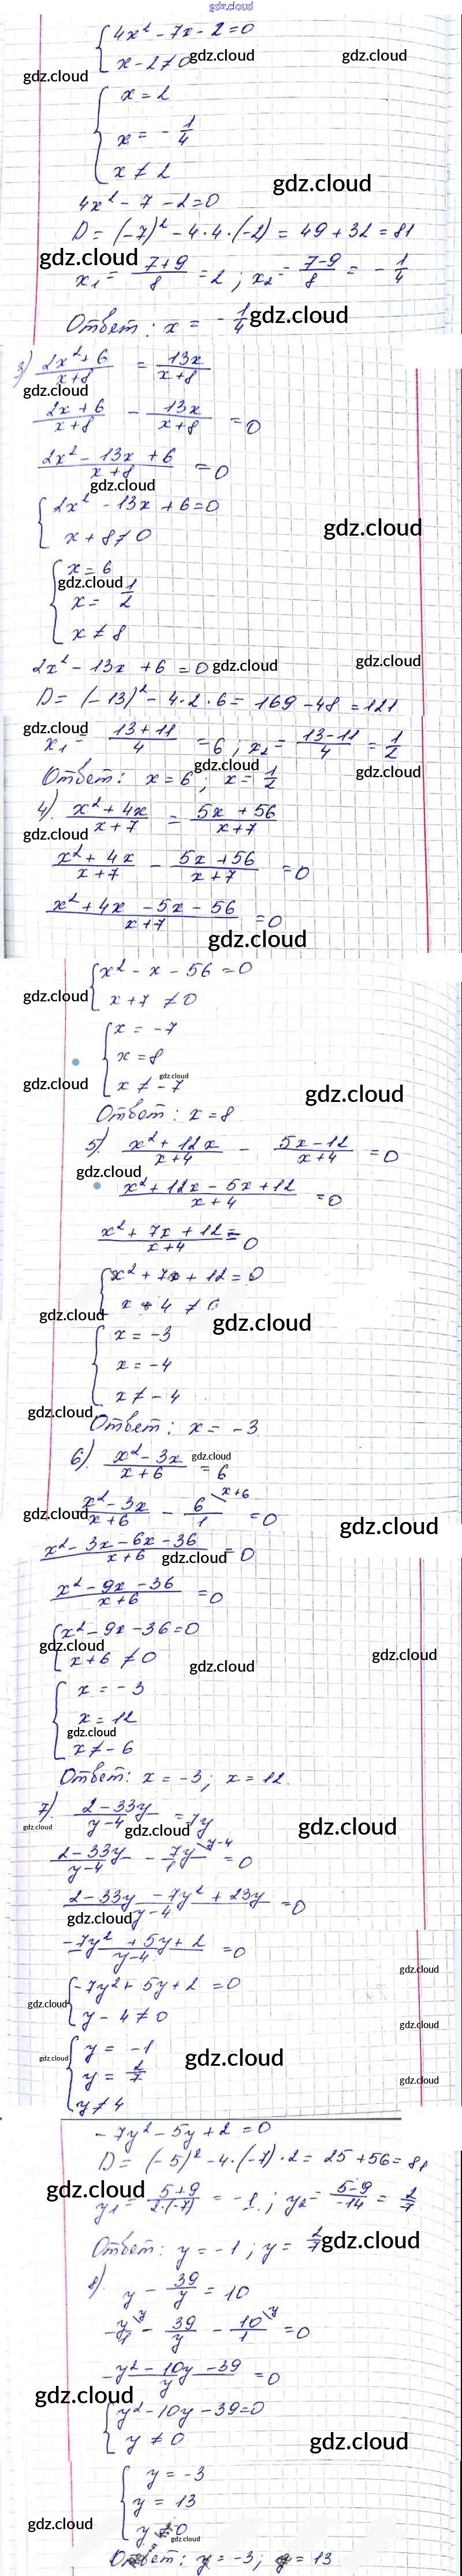 gdz.cloud
4x² - 7x - 2 = 0
x - 2 ≠ 0 gdz.cloud gdz.cloud
gdz.cloud
x = 2
x = - 1/4
x ≠ 2
gdz.cloud
4x² - 7 - 2 = 0
D = (-7)² - 4·4·(-2) = 49 + 32 = 81
gdz.cloud
x₁ = (7+9)/8 = 2; x₂ = (7-9)/8 = - 1/4
Ответ: x = - 1/4 gdz.cloud
3) (2x²+6)/(x+8) = 13x/(x+8)
gdz.cloud
(2x+6)/(x+8) - 13x/(x+8) = 0
(2x² - 13x + 6)/(x+8) = 0
gdz.cloud
2x² - 13x + 6 = 0
x + 8 ≠ 0 gdz.cloud
x = 6
gdz.cloud
x = 1/2
x ≠ 8
2x² - 13x + 6 = 0 gdz.cloud gdz.cloud
D = (-13)² - 4·2·6 = 169 - 48 = 121
gdz.cloud
x₁ = (13+11)/4 = 6; x₂ = (13-11)/4 = 1/2
gdz.cloud
Ответ: x = 6; x = 1/2 gdz.cloud
4) (x²+4x)/(x+7) = (5x+56)/(x+7)
gdz.cloud
(x²+4x)/(x+7) - (5x+56)/(x+7) = 0
(x²+4x-5x-56)/(x+7) = 0
gdz.cloud
x² - x - 56 = 0
gdz.cloud x + 7 ≠ 0
x = -7
x = 8
gdz.cloud x ≠ -7 gdz.cloud gdz.cloud
Ответ: x = 8
5) (x²+12x)/(x+4) - (5x-12)/(x+4) = 0
gdz.cloud
(x²+12x-5x+12)/(x+4) = 0
(x²+7x+12)/(x+4) = 0
x² + 7x + 12 = 0
x + 4 ≠ 0
gdz.cloud gdz.cloud
x = -3
x = -4
x ≠ -4
gdz.cloud
Ответ: x = -3
6) (x²-3x)/(x+6) = 6 gdz.cloud
(x²-3x)/(x+6) - 6/1 \x+6 = 0
gdz.cloud gdz.cloud
(x²-3x-6x-36)/(x+6) = 0
gdz.cloud
(x²-9x-36)/(x+6) = 0
x² - 9x - 36 = 0
gdz.cloud
x + 6 ≠ 0 gdz.cloud gdz.cloud
x = -3
x = 12
gdz.cloud
x ≠ -6
Ответ: x = -3; x = 12.
7) (2-33y)/(y-4) = 7y
gdz.cloud gdz.cloud gdz.cloud
(2-33y)/(y-4) - 7y/1 \y-4 = 0
(2-33y-7y²+23y)/(y-4) = 0
gdz.cloud
(-7y²+5y+2)/(y-4) = 0
gdz.cloud
-7y² + 5y + 2 = 0
gdz.cloud y - 4 ≠ 0 gdz.cloud
y = -1
gdz.cloud y = 2/7 gdz.cloud
y ≠ 4 gdz.cloud
-7y² - 5y + 2 = 0
D = (-5)² - 4·(-7)·2 = 25 + 56 = 81
gdz.cloud
y₁ = (5+9)/(2·(-7)) = -1; y₂ = (5-9)/-14 = 2/7
Ответ: y = -1; y = 2/7 gdz.cloud
8) y - 39/y = 10
-y/1 \y - 39/y - 10/1 \y = 0
(-y²-10y-39)/y = 0
gdz.cloud
y² - 10y - 39 = 0
y ≠ 0 gdz.cloud
y = -3
y = 13
gdz.cloud y ≠ 0
gdz.cloud
Ответ: y = -3; y = 13